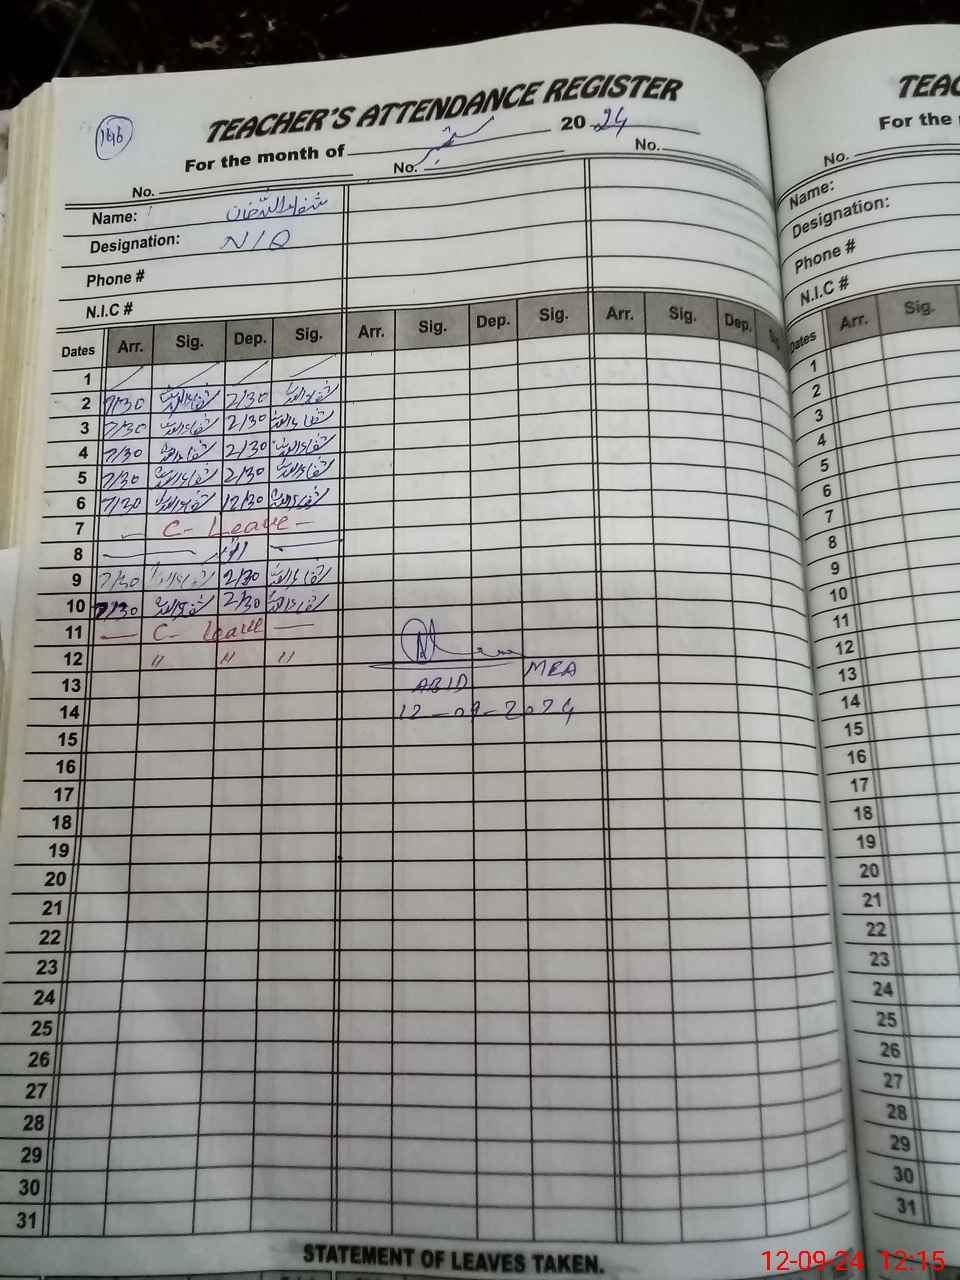 TEACHER'S ATTENDANCE REGISTER
For the month of ستمبر 2024
No. No. No.
Name:
Designation: N/Q
Phone #
N.I.C #
Dates Arr. Sig. Dep. Sig. Arr. Sig. Dep. Sig. Arr. Sig. Dep.
1
2 7/30 2/30
3 7/30 2/30
4 7/30 2/30
5 7/30 2/30
6 7/30 12/30
7 C- Leave
8
9 7/30 2/30
10 7/30 2/30
11 C- Leave
12 " " "
13 ABID MEA
14 12-09-2024
15
16
17
18
19
20
21
22
23
24
25
26
27
28
29
30
31
STATEMENT OF LEAVES TAKEN.
TEAC
For the
No.
Name:
Designation:
Phone #
N.I.C #
Dates Arr. Sig.
1
2
3
4
5
6
7
8
9
10
11
12
13
14
15
16
17
18
19
20
21
22
23
24
25
26
27
28
29
30
31
12-09-24 12:15